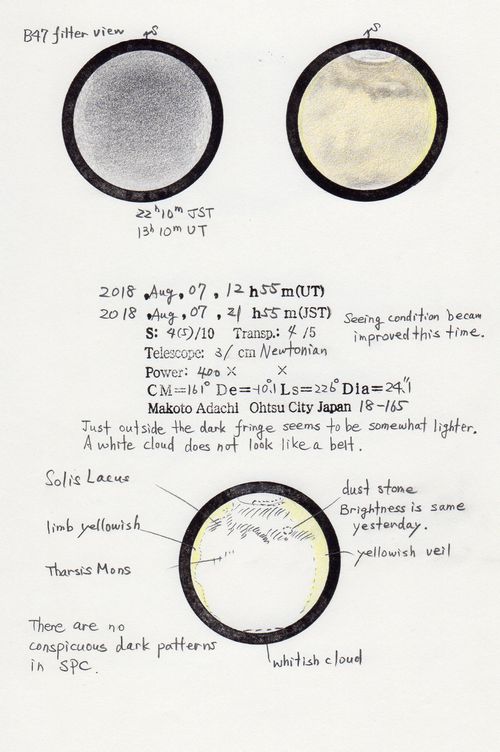 B47 filter view
S
S
22h10m JST
13h10m UT
2018, Aug, 07, 12 h55 m(UT)
2018, Aug, 07, 21 h55 m(JST)
S: 4(5)/10 Transp.: 4/5
Seeing condition becam
improved this time.
Telescope: 31 cm Newtonian
Power: 400 × ×
CM=161° De=-10.1 Ls=226° Dia=24".1
Makoto Adachi Ohtsu City Japan 18-165
Just outside the dark fringe seems to be somewhat lighter.
A white cloud does not look like a belt.
Solis Lacus
dust stome
Brightness is same
yesterday.
limb yellowish
yellowish veil
Tharsis Mons
There are no
conspicuous dark patterns
in SPC.
whitish cloud